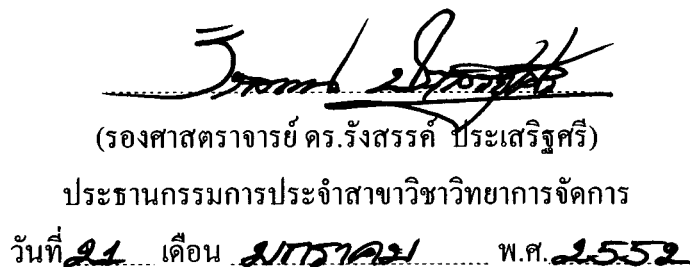 (รองศาสตราจารย์ ดร.รังสรรค์ ประเสริฐศรี)
ประธานกรรมการประจำสาขาวิชาวิทยาการจัดการ
วันที่ 21 เดือน มกราคม พ.ศ. 2552